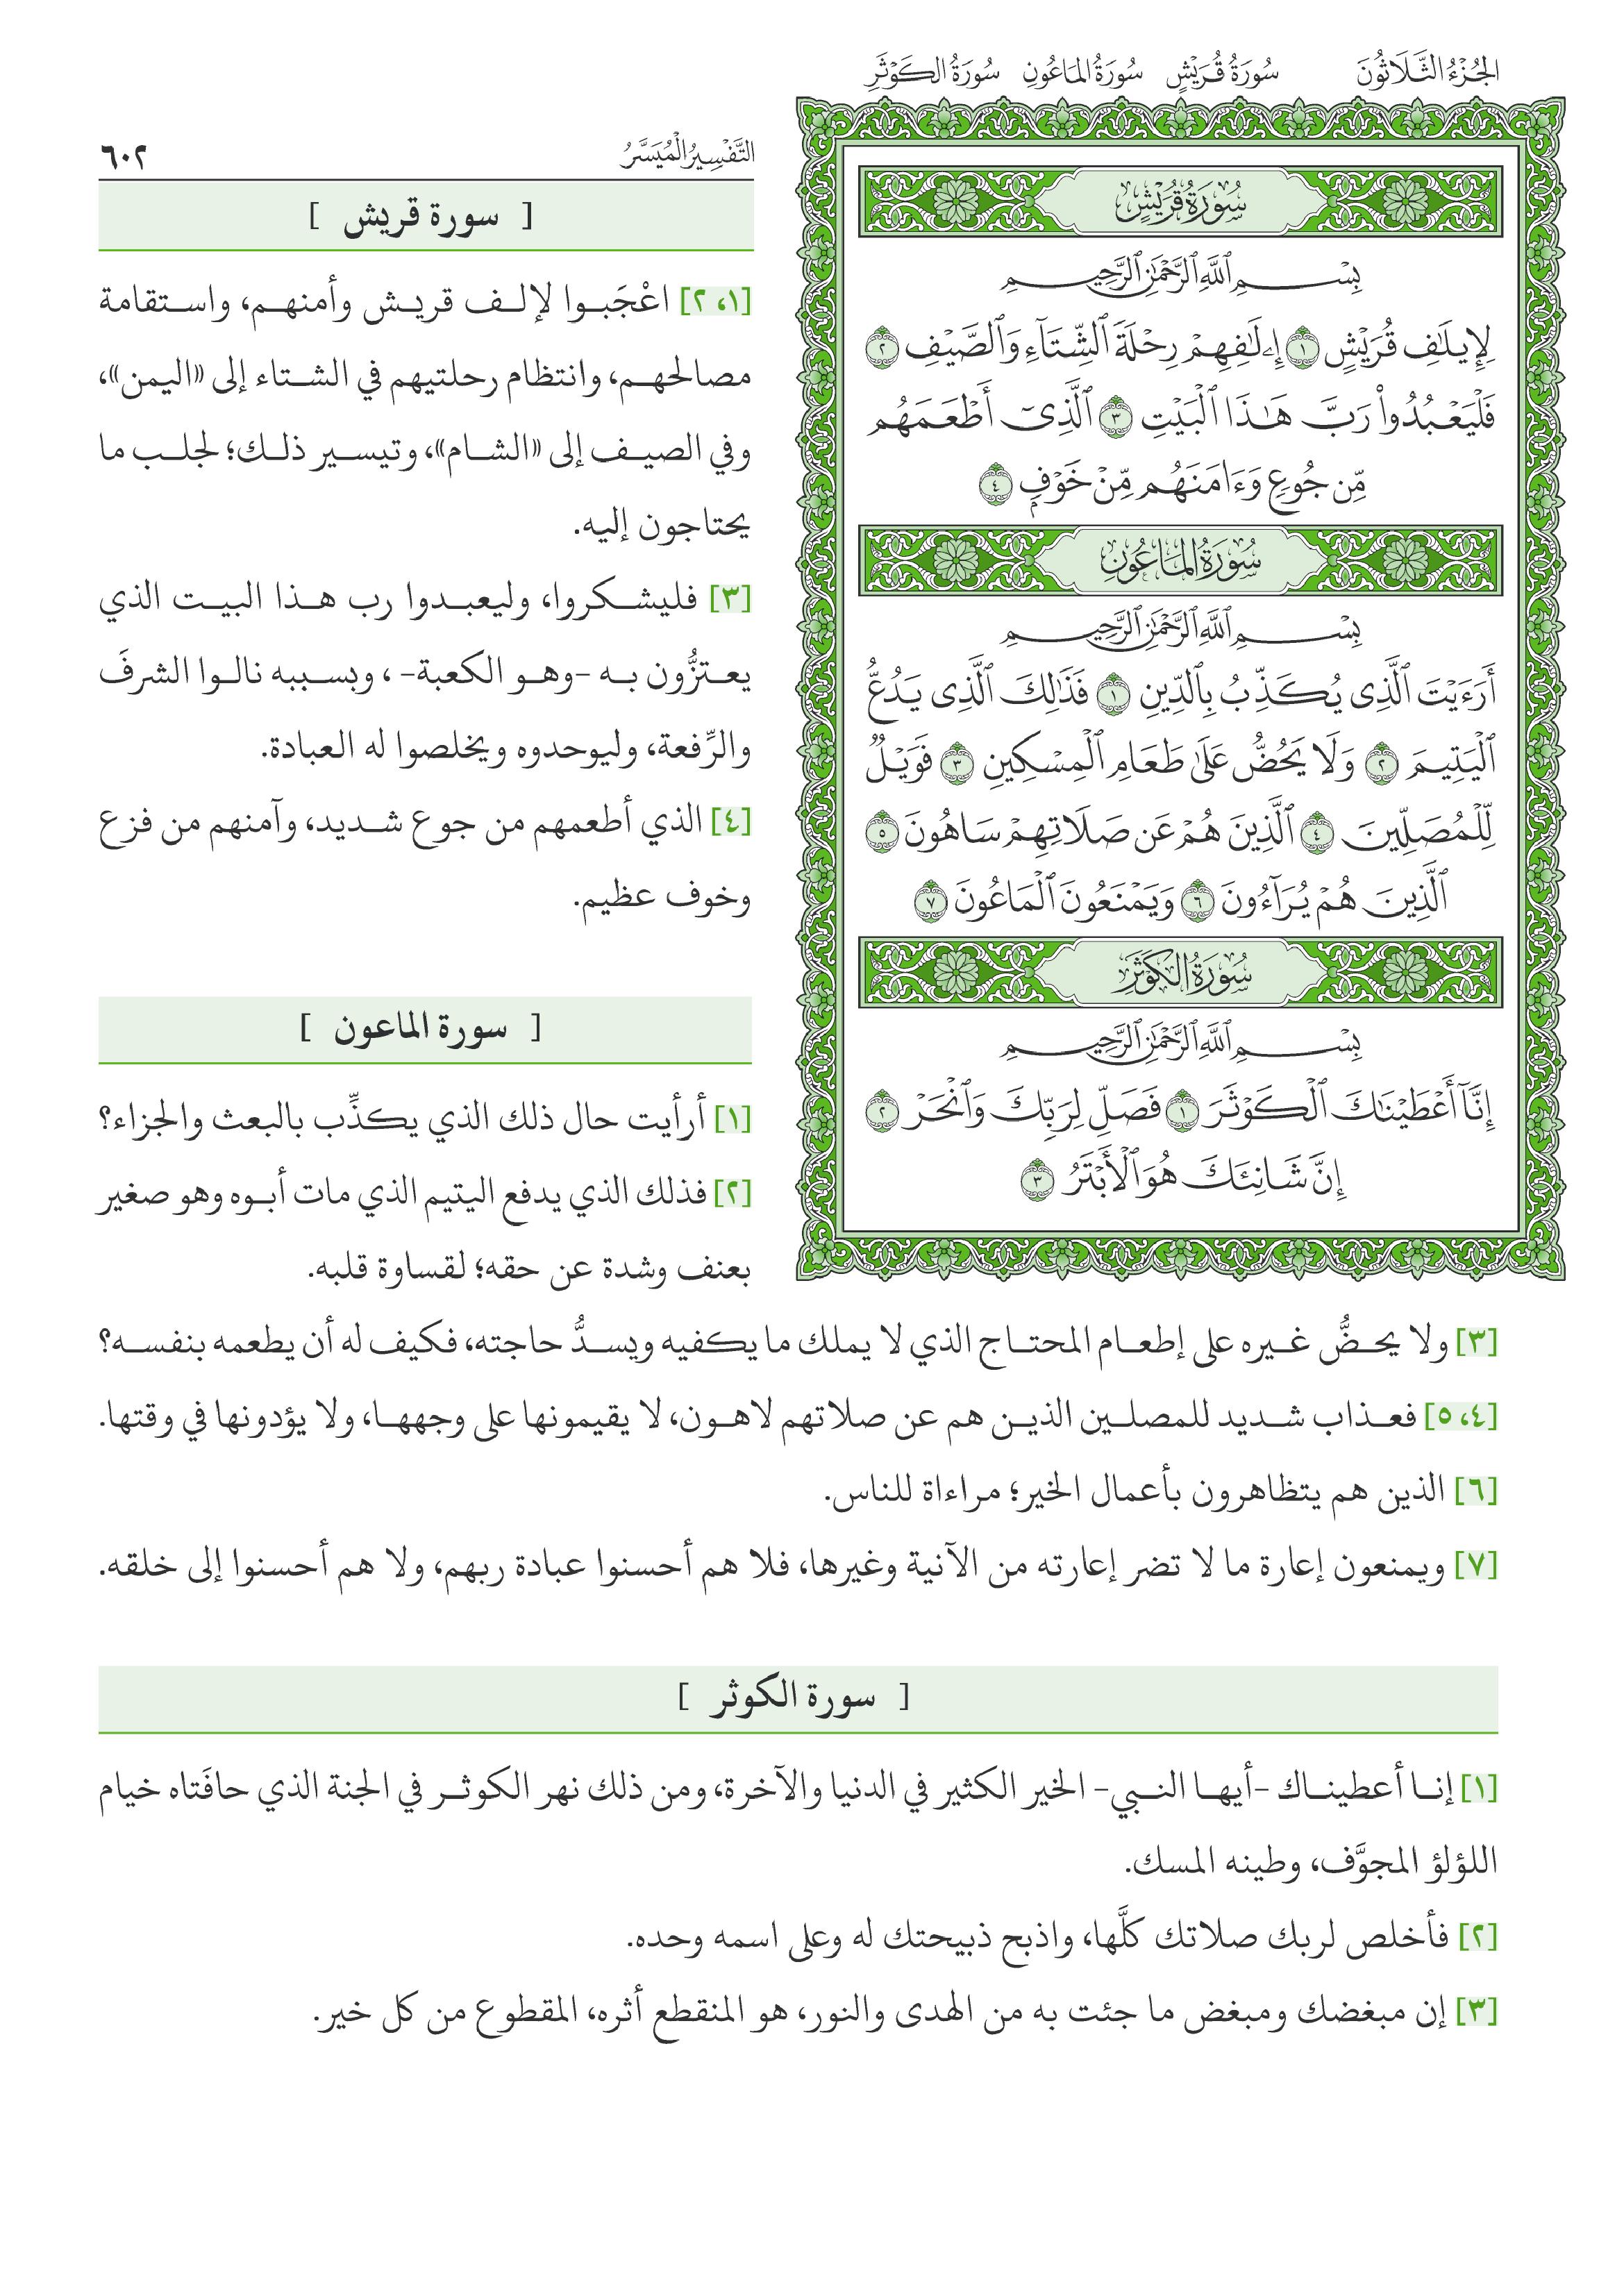 الجُزْءُ الثَّلَاثُونَ سُورَةُ قُرَيْشٍ سُورَةُ المَاعُونِ سُورَةُ الكَوْثَرِ
سُورَةُ قُرَيْشٍ
بِسْمِ ٱللَّهِ ٱلرَّحْمَٰنِ ٱلرَّحِيمِ
لِإِيلَٰفِ قُرَيْشٍ ١ إِۦلَٰفِهِمْ رِحْلَةَ ٱلشِّتَآءِ وَٱلصَّيْفِ ٢
فَلْيَعْبُدُوا۟ رَبَّ هَٰذَا ٱلْبَيْتِ ٣ ٱلَّذِىٓ أَطْعَمَهُم
مِّن جُوعٍ وَءَامَنَهُم مِّنْ خَوْفٍۭ ٤
سُورَةُ المَاعُونِ
بِسْمِ ٱللَّهِ ٱلرَّحْمَٰنِ ٱلرَّحِيمِ
أَرَءَيْتَ ٱلَّذِى يُكَذِّبُ بِٱلدِّينِ ١ فَذَٰلِكَ ٱلَّذِى يَدُعُّ
ٱلْيَتِيمَ ٢ وَلَا يَحُضُّ عَلَىٰ طَعَامِ ٱلْمِسْكِينِ ٣ فَوَيْلٌ
لِّلْمُصَلِّينَ ٤ ٱلَّذِينَ هُمْ عَن صَلَاتِهِمْ سَاهُونَ ٥
ٱلَّذِينَ هُمْ يُرَآءُونَ ٦ وَيَمْنَعُونَ ٱلْمَاعُونَ ٧
سُورَةُ الكَوْثَرِ
بِسْمِ ٱللَّهِ ٱلرَّحْمَٰنِ ٱلرَّحِيمِ
إِنَّآ أَعْطَيْنَٰكَ ٱلْكَوْثَرَ ١ فَصَلِّ لِرَبِّكَ وَٱنْحَرْ ٢
إِنَّ شَانِئَكَ هُوَ ٱلْأَبْتَرُ ٣
التَّفْسِيرُ الْمُيَسَّرُ ٦٠٢
[ سورة قريش ]
[١، ٢] اعْجَبوا لإلف قريش وأمنهم، واستقامة
مصالحهم، وانتظام رحلتيهم في الشتاء إلى «اليمن»،
وفي الصيف إلى «الشام»، وتيسير ذلك؛ لجلب ما
يحتاجون إليه.
[٣] فليشكروا، وليعبدوا رب هذا البيت الذي
يعتزُّون به -وهو الكعبة- ، وبسببه نالوا الشرفَ
والرِّفعة، وليوحدوه ويخلصوا له العبادة.
[٤] الذي أطعمهم من جوع شديد، وآمنهم من فزع
وخوف عظيم.
[ سورة الماعون ]
[١] أرأيت حال ذلك الذي يكذِّب بالبعث والجزاء؟
[٢] فذلك الذي يدفع اليتيم الذي مات أبوه وهو صغير
بعنف وشدة عن حقه؛ لقساوة قلبه.
[٣] ولا يحضُّ غيره على إطعام المحتاج الذي لا يملك ما يكفيه ويسدُّ حاجته، فكيف له أن يطعمه بنفسه؟
[٤، ٥] فعذاب شديد للمصلين الذين هم عن صلاتهم لاهون، لا يقيمونها على وجهها، ولا يؤدونها في وقتها.
[٦] الذين هم يتظاهرون بأعمال الخير؛ مراءاة للناس.
[٧] ويمنعون إعارة ما لا تضر إعارته من الآنية وغيرها، فلا هم أحسنوا عبادة ربهم، ولا هم أحسنوا إلى خلقه.
[ سورة الكوثر ]
[١] إنا أعطيناك -أيها النبي- الخير الكثير في الدنيا والآخرة، ومن ذلك نهر الكوثر في الجنة الذي حافَتاه خيام
اللؤلؤ المجوَّف، وطينه المسك.
[٢] فأخلص لربك صلاتك كلَّها، واذبح ذبيحتك له وعلى اسمه وحده.
[٣] إن مبغضك ومبغض ما جئت به من الهدى والنور، هو المنقطع أثره، المقطوع من كل خير.